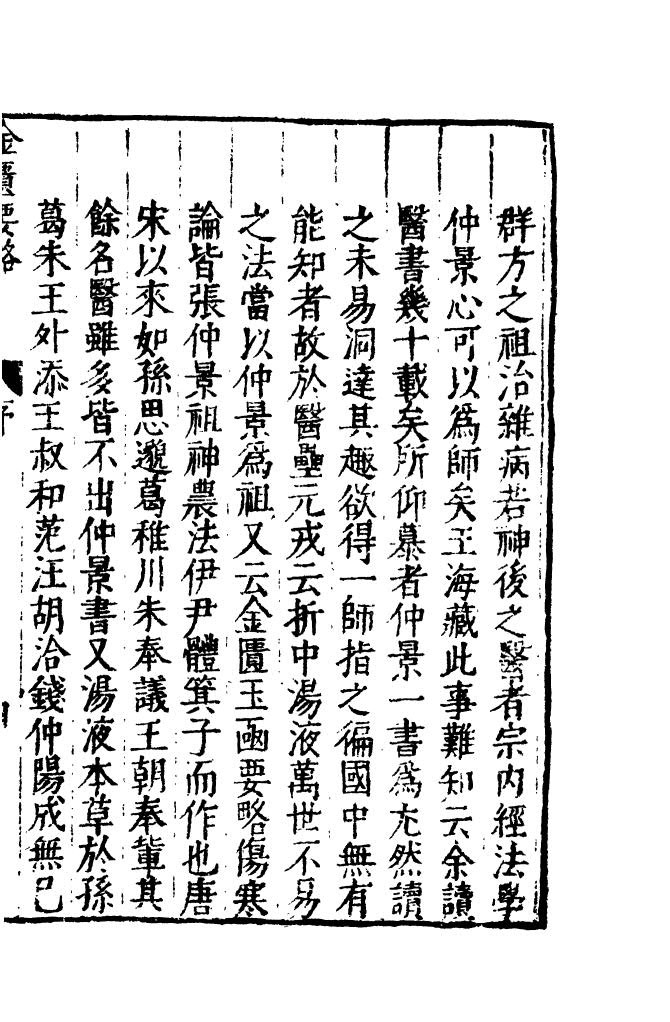 群方之祖治雜病若神後之醫者宗内經法學
仲景心可以為師矣王海藏此事難知云余讀
醫書幾十載矣所仰慕者仲景一書為尤然讀
之未易洞達其趣欲得一師指之徧國中無有
能知者故於醫壘元戎云折中湯液萬世不易
之法當以仲景為祖又云金匱玉函要略傷寒
論皆張仲景祖神農法伊尹體箕子而作也唐
宋以來如孫思邈葛稚川朱奉議王朝奉輩其
餘名醫雖多皆不出仲景書又湯液本草於孫
葛朱王外添王叔和范汪胡洽錢仲陽成無己
金匱要略
序